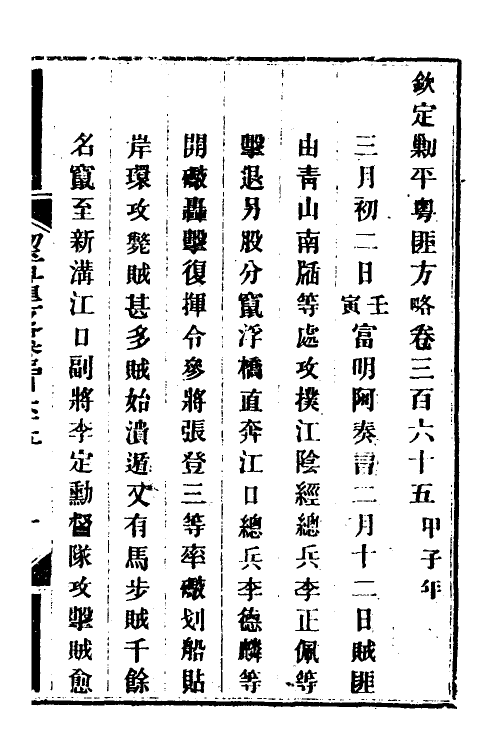 欽定勦平粵匪方略卷三百六十五 甲子年
三月初二日壬寅富明阿奏言二月十二日賊匪
由青山南牐等處攻撲江陰經總兵李正佩等
擊退另股分竄浮橋直奔江口總兵李德麟等
開礮轟擊復揮令參將張登三等率礮划船貼
岸環攻斃賊甚多賊始潰遁又有馬步賊千餘
名竄至新溝江口副將李定勳督隊攻擊賊愈